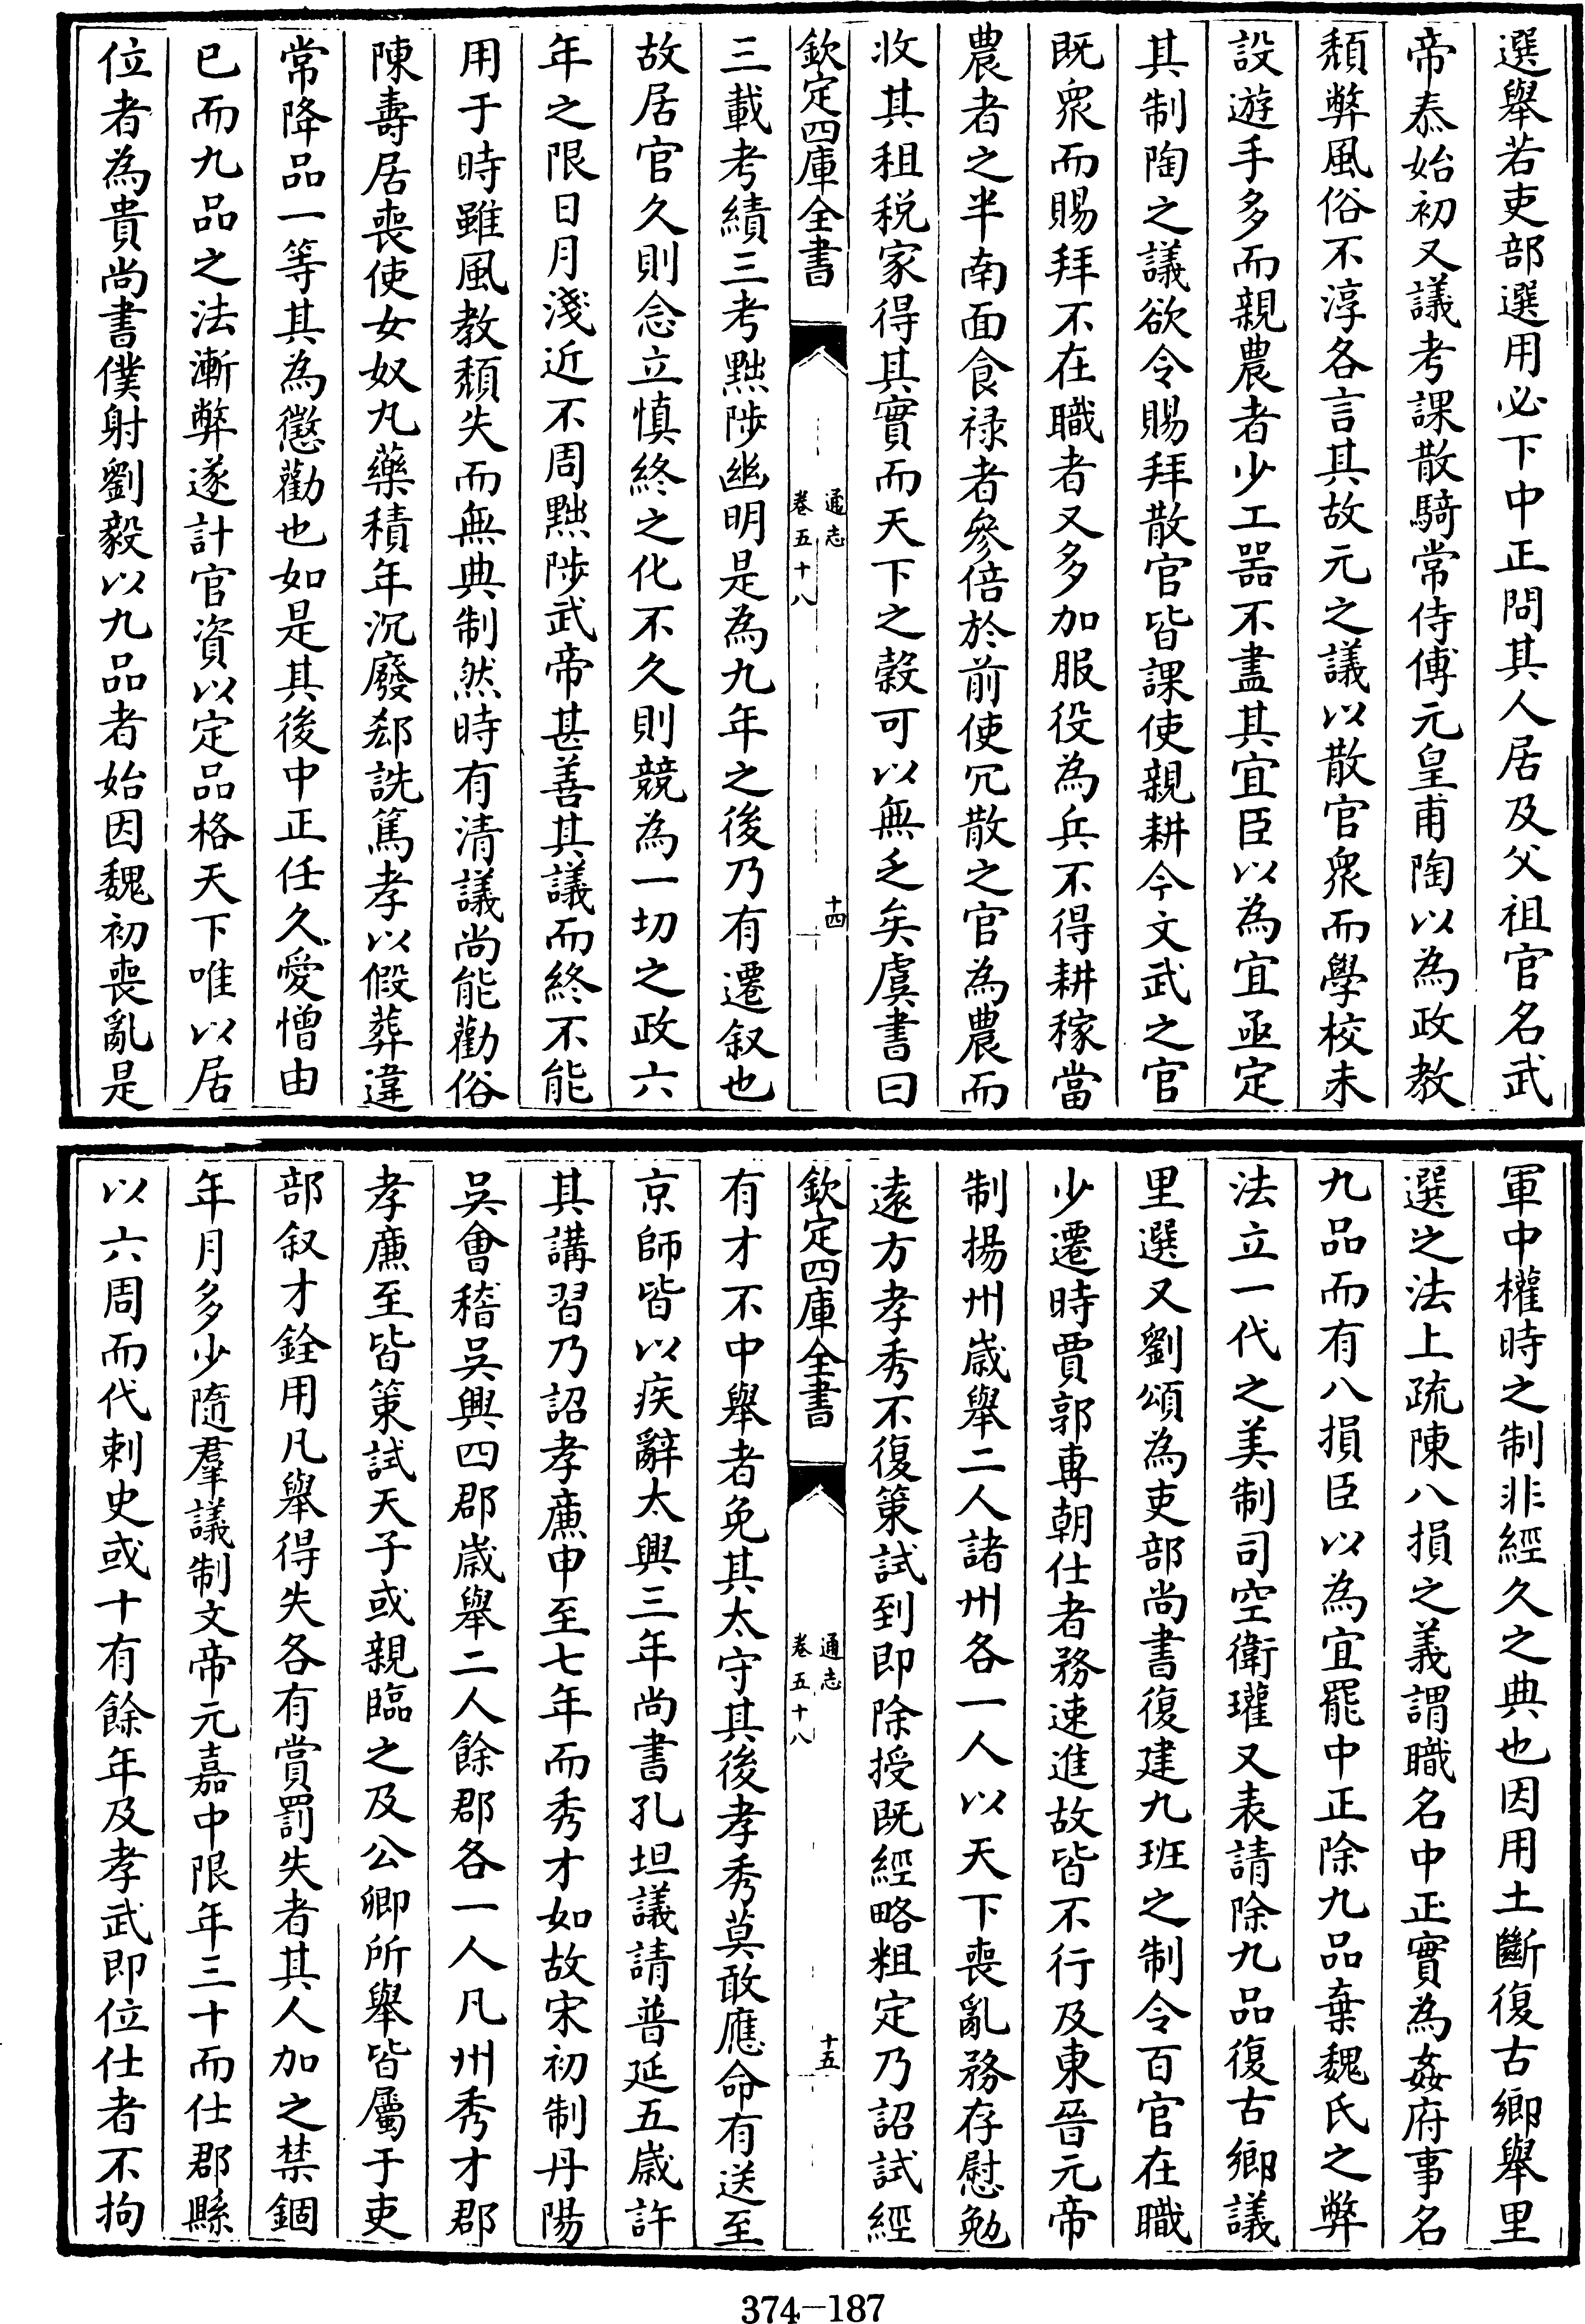 選舉若吏部選用必下中正問其人居及父祖官名武
帝泰始初又議考課散騎常侍傅元皇甫陶以為政教
頹弊風俗不淳各言其故元之議以散官衆而學校未
設遊手多而親農者少工器不盡其宜臣以為宜亟定
其制陶之議欲令賜拜散官皆課使親耕今文武之官
既衆而賜拜不在職者又多加服役為兵不得耕稼當
農者之半南面食禄者參倍於前使冗散之官為農而
收其租税家得其實而天下之穀可以無乏矣虞書曰
欽定四庫全書
通志
卷五十八
十四
三載考績三考黜陟幽明是為九年之後乃有遷叙也
故居官久則念立慎終之化不久則競為一切之政六
年之限日月淺近不周黜陟武帝甚善其議而終不能
用于時雖風教頹失而無典制然時有清議尚能勸俗
陳壽居喪使女奴丸藥積年沉廢郄詵篤孝以假葬違
常降品一等其為懲勸也如是其後中正任久愛憎由
已而九品之法漸弊遂計官資以定品格天下唯以居
位者為貴尚書僕射劉毅以九品者始因魏初喪亂是
軍中權時之制非經久之典也因用土斷復古鄉舉里
選之法上疏陳八損之義謂職名中正實為姦府事名
九品而有八損臣以為宜罷中正除九品棄魏氏之弊
法立一代之美制司空衛瓘又表請除九品復古鄉議
里選又劉頌為吏部尚書復建九班之制令百官在職
少遷時賈郭專朝仕者務速進故皆不行及東晉元帝
制揚州歲舉二人諸州各一人以天下喪亂務存慰勉
遠方孝秀不復策試到即除授既經略粗定乃詔試經
欽定四庫全書
通志
卷五十八
十五
有才不中舉者免其太守其後孝秀莫敢應命有送至
京師皆以疾辭太興三年尚書孔坦議請普延五歲許
其講習乃詔孝廉申至七年而秀才如故宋初制丹陽
吳會稽吳興四郡歲舉二人餘郡各一人凡州秀才郡
孝廉至皆策試天子或親臨之及公卿所舉皆屬于吏
部叙才銓用凡舉得失各有賞罰失者其人加之禁錮
年月多少隨羣議制文帝元嘉中限年三十而仕郡縣
以六周而代刺史或十有餘年及孝武即位仕者不拘
374-187